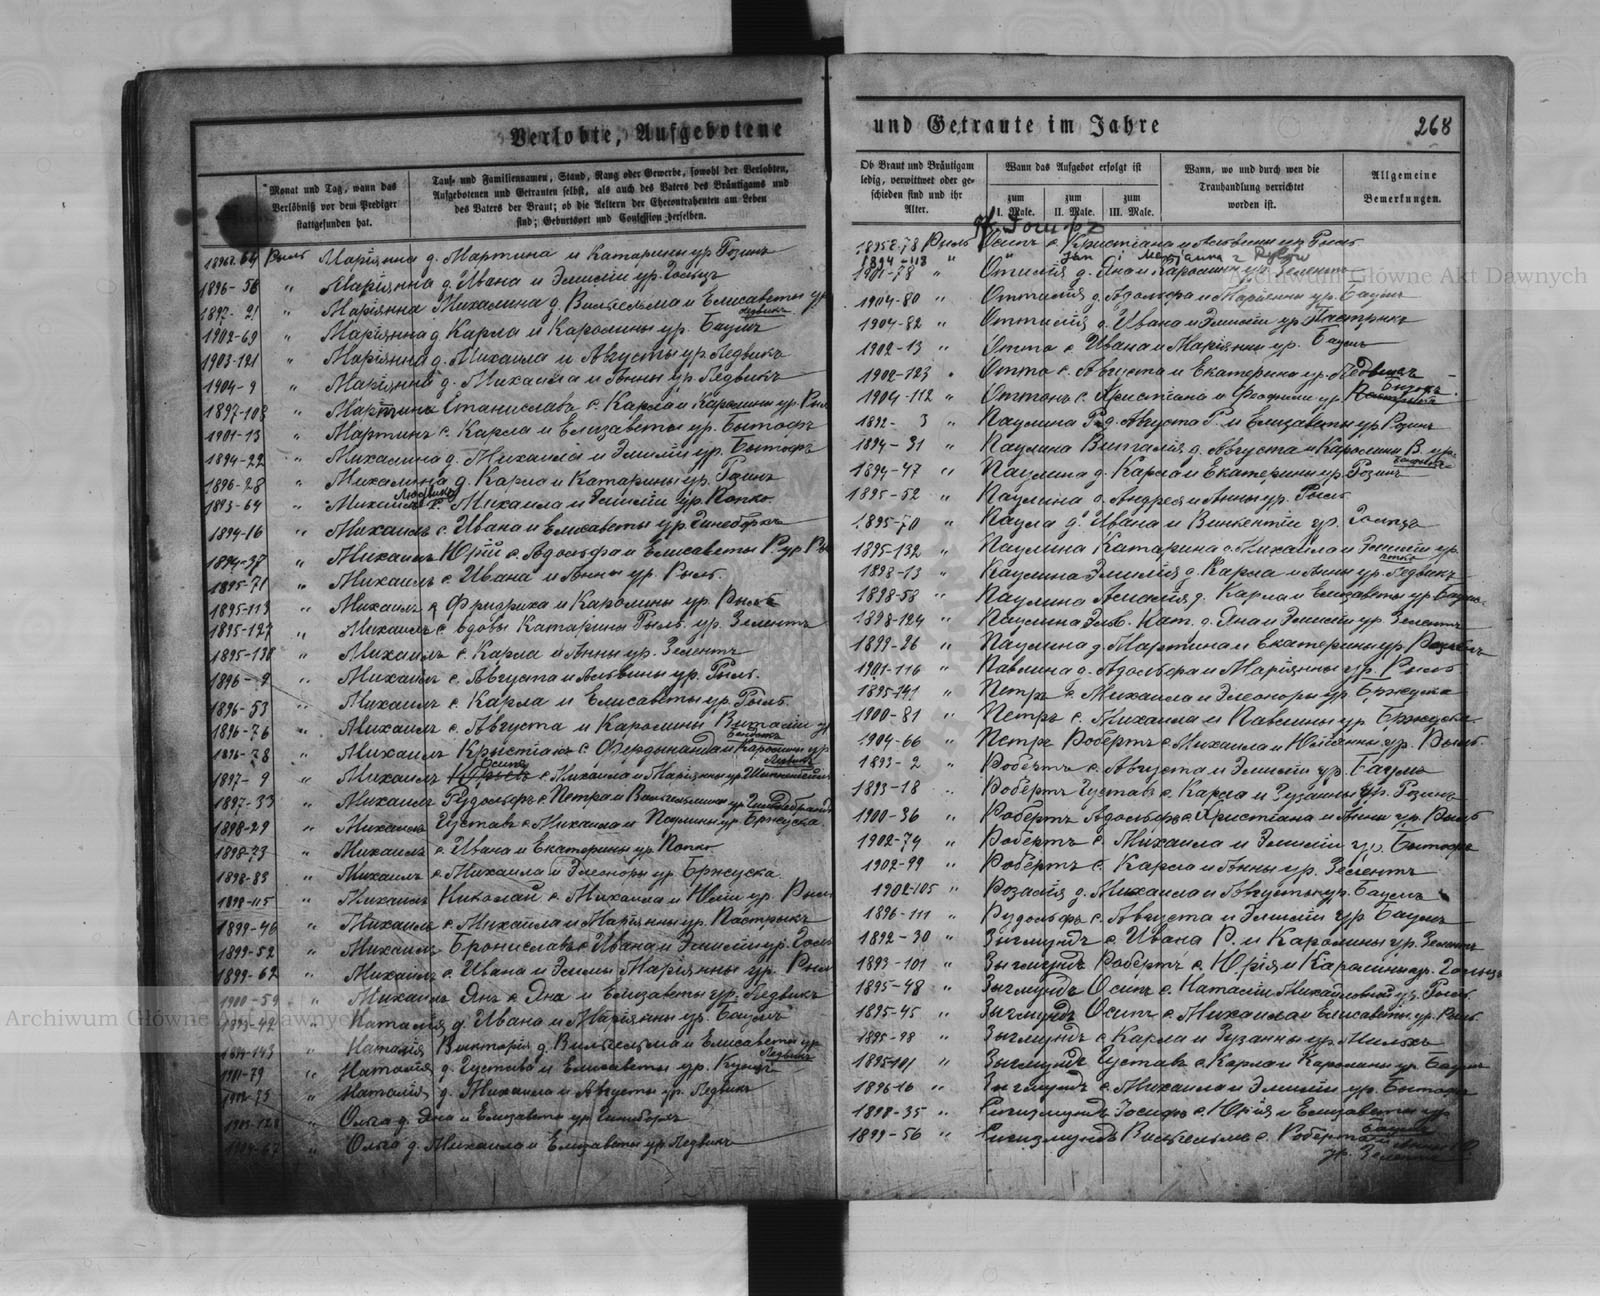 Verlobte, Aufgebotene
Monat und Tag, wann das Verlöbniß vor dem Prediger stattgefunden hat.
Tauf- und Familiennamen, Stand, Rang oder Gewerbe, sowohl der Verlobten,
Aufgebotenen und Getrauten selbst, als auch des Vaters des Bräutigams und
des Vaters der Braut; ob die Aeltern der Ehecontrahenten am Leben
sind; Geburtsort und Confession derselben.
Рыль Маріянна д. Мартина и Катарины ур Розинъ
1896-56 " Маріянна д. Ивана и Эмиліи ур. Гольцъ
1897-21 " Маріянна Михалина д. Вильгельма и Елисаветы ур
Ледвикъ
1902-69 " Маріянна д. Карла и Каролины ур. Баумъ
1903-121 " Маріянна д. Михаила и Августы ур Ледвикъ
1904-9 " Маріянна д. Михаила и Анны ур Ледвикъ
1897-108 " Станислава с. Карла и Каролины ур
1901-13 " Мартинъ с. Карла и Елизаветы ур. Бытофъ
1894-22 " Михалина д. Михаила и Эмиліи ур. Бытофъ
1896-28 " Михалина д. Карла и Катарины ур. Розинъ
1893-64 " Михаила и Эмиліи ур. Попко
1894-16 " Михаилъ с. Ивана и Елисаветы ур
1894-37 " Михаилъ Юрій с. Адольфа и Елисаветы Р. ур
1895-71 " Михаилъ с. Ивана и Анны ур. Рыль.
1895-113 " Михаилъ с. Фридриха и Каролины ур. Рыль
1895-127 " Михаилъ с. вдовы Катарины Рыль ур. Зелентъ
1895-138 " Михаилъ с. Карла и Анны ур. Зелентъ
1896-9 " Михаилъ с. Августа и Альвины ур. Рыль.
1896-53 " Михаилъ с. Карла и Елисаветы ур. Рыль.
1896-76 " Михаилъ с. Августа и Каролины
1896-78 " Михаилъ Крыстіанъ с. Фердинанда и Каролины ур
1897-9 " Михаилъ Осипъ с. Михаила и Маріянны ур
1897-33 " Михаилъ Рудольфъ с. Петра и Вильгельмины ур Гильдебрандъ
1898-29 " Михаилъ Густавъ с. Михаила и Паулины ур. Бржуска.
1898-73 " Михаилъ с. Ивана и Екатерины ур Попко
1898-83 " Михаилъ с. Михаила и Элеоноры ур Бржуска.
1898-115 " Михаилъ Николай с. Михаила и Юліи ур. Рыль
1899-46 " Михаилъ с. Михаила и Маріянны ур. Пастрыкъ
1899-52 " Михаилъ Брониславъ с. Ивана и Эмиліи ур.
1899-62 " Михаилъ с. Ивана и Эммы Маріянны ур. Рыль
1900-59 " Михаилъ Янъ с. Яна и Елизаветы ур. Ледвикъ
" Наталія д. Ивана и Маріянны ур. Баумъ
" Наталія Викторія д. Вильгельма и Елисаветы ур
Ледвикъ
1901-79 " Наталія д. Густава и Елисаветы ур.
1902-75 " Наталія д. Михаила и Августы ур. Ледвикъ
Ольга д. Яна и Елизаветы ур
" Ольга д. Михаила и Елизаветы ур Ледвикъ
und Getraute im Jahre
268
Ob Braut und Bräutigam ledig, verwittwet oder geschieden sind und ihr Alter.
Wann das Aufgebot erfolgt ist
zum I. Male.
zum II. Male.
zum III. Male.
Wann, wo und durch wen die Trauhandlung verrichtet worden ist.
Allgemeine Bemerkungen.
Рыль Осипъ с. Кристіана и Альвины ур Рыль
1894-113 " " Jan i Marjanna z
1901-78 " Отилія д. Яна и Каролины ур. Зелентъ
1904-80 " Оттилія д. Адольфа и Маріянны ур. Баумъ
1904-82 " Оттилія д. Ивана и Эмиліи ур Пастрыкъ
1902-13 " Отто с. Ивана и Маріянны ур. Баумъ
1902-123 " Отто с. Августа и Екатерины ур. Ледвикъ
1904-112 " Оттонъ с. Христіана и ур.
1892-3 " Паулина Р. д. Августа Р. и Елизаветы ур Розинъ
1894-31 " Паулина Виталія д. Августа и Каролины В. ур.
1894-47 " Паулина д. Карла и Екатерины ур Розинъ
1895-52 " Паулина д. Андрея и Анны ур. Рыль
1895-70 " Паула д. Ивана и Винкентіи ур. Гольцъ
1895-132 " Паулина Катарина д. Михаила и Эмиліи ур.
Попко
1898-13 " Паулина Эмилія д. Карла и Анны ур. Ледвикъ
1898-58 " Паулина Амалія д. Карла и Елизаветы ур
1898-124 " Паулина Эльв. Нат. д. Яна и Эмиліи ур Зелентъ
1899-26 " Паулина д. Мартина и Екатерины ур.
1901-116 " Павлина д. Адольфа и Маріянны ур. Рыль
1895-141 " Петръ с. Михаила и Элеоноры ур Бржуска
1900-81 " Петръ с. Михаила и Павлины ур Бржуска
1904-66 " Петръ Робертъ с. Михаила и Юліанны ур. Рыль.
1893-2 " Робертъ с. Августа и Эмиліи ур. Баумъ
1893-18 " Робертъ Густавъ с. Карла и Зузанны ур. Розинъ
1900-36 " Робертъ Адольфъ с. Христіана и Анны ур. Рыль
1902-74 " Робертъ с. Михаила и Эмиліи ур. Бытофъ
1902-99 " Робертъ с. Карла и Анны ур. Зелентъ
1902-105 " Розалія д. Михаила и Августы ур. Баумъ
1896-111 " Рудольфъ с. Августа и Эмиліи ур Баумъ
1892-30 " Зыгмундъ с. Ивана Р. и Каролины ур. Зелентъ
1893-101 " Зыгмундъ Робертъ с. Юрія и Каролины ур. Гольцъ
1895-48 " Зыгмундъ Осипъ с. Наталіи Михайловой ур. Рыль.
1895-45 " Зыгмундъ Осипъ с. Михаила и Елисаветы ур. Рыль
1895-98 " Зыгмундъ с. Карла и Зузанны ур.
1895-101 " Зыгмундъ Густавъ с. Карла и Каролины ур. Баумъ
1896-16 " Зыгмундъ с. Михаила и Эмиліи ур. Бытофъ
1898-35 " Сигизмундъ Іосифъ с. Юлія и Елизаветы ур
Баумъ
1899-56 " Сигизмундъ Вильгельмъ с. Роберта и
ур. Зелентъ
Archiwum Główne Akt Dawnych
Archiwum Główne Akt Dawnych